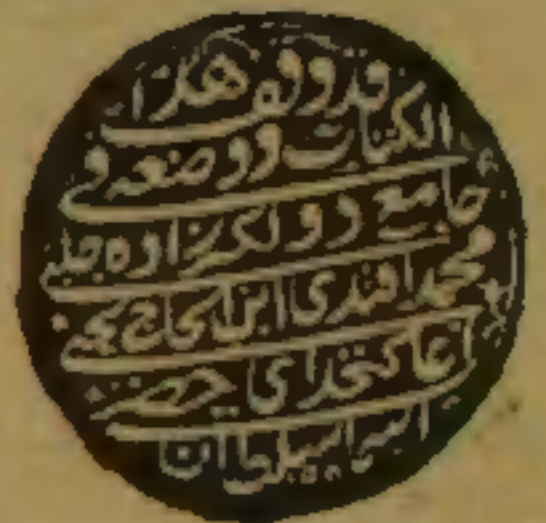 قد وقف هذا
الكتاب ووضعه في
جامع دولكرزاده جلبي
محمد افندي ابن الحاج يحيى
اغا كتخداي حضرت
اسير السلطان